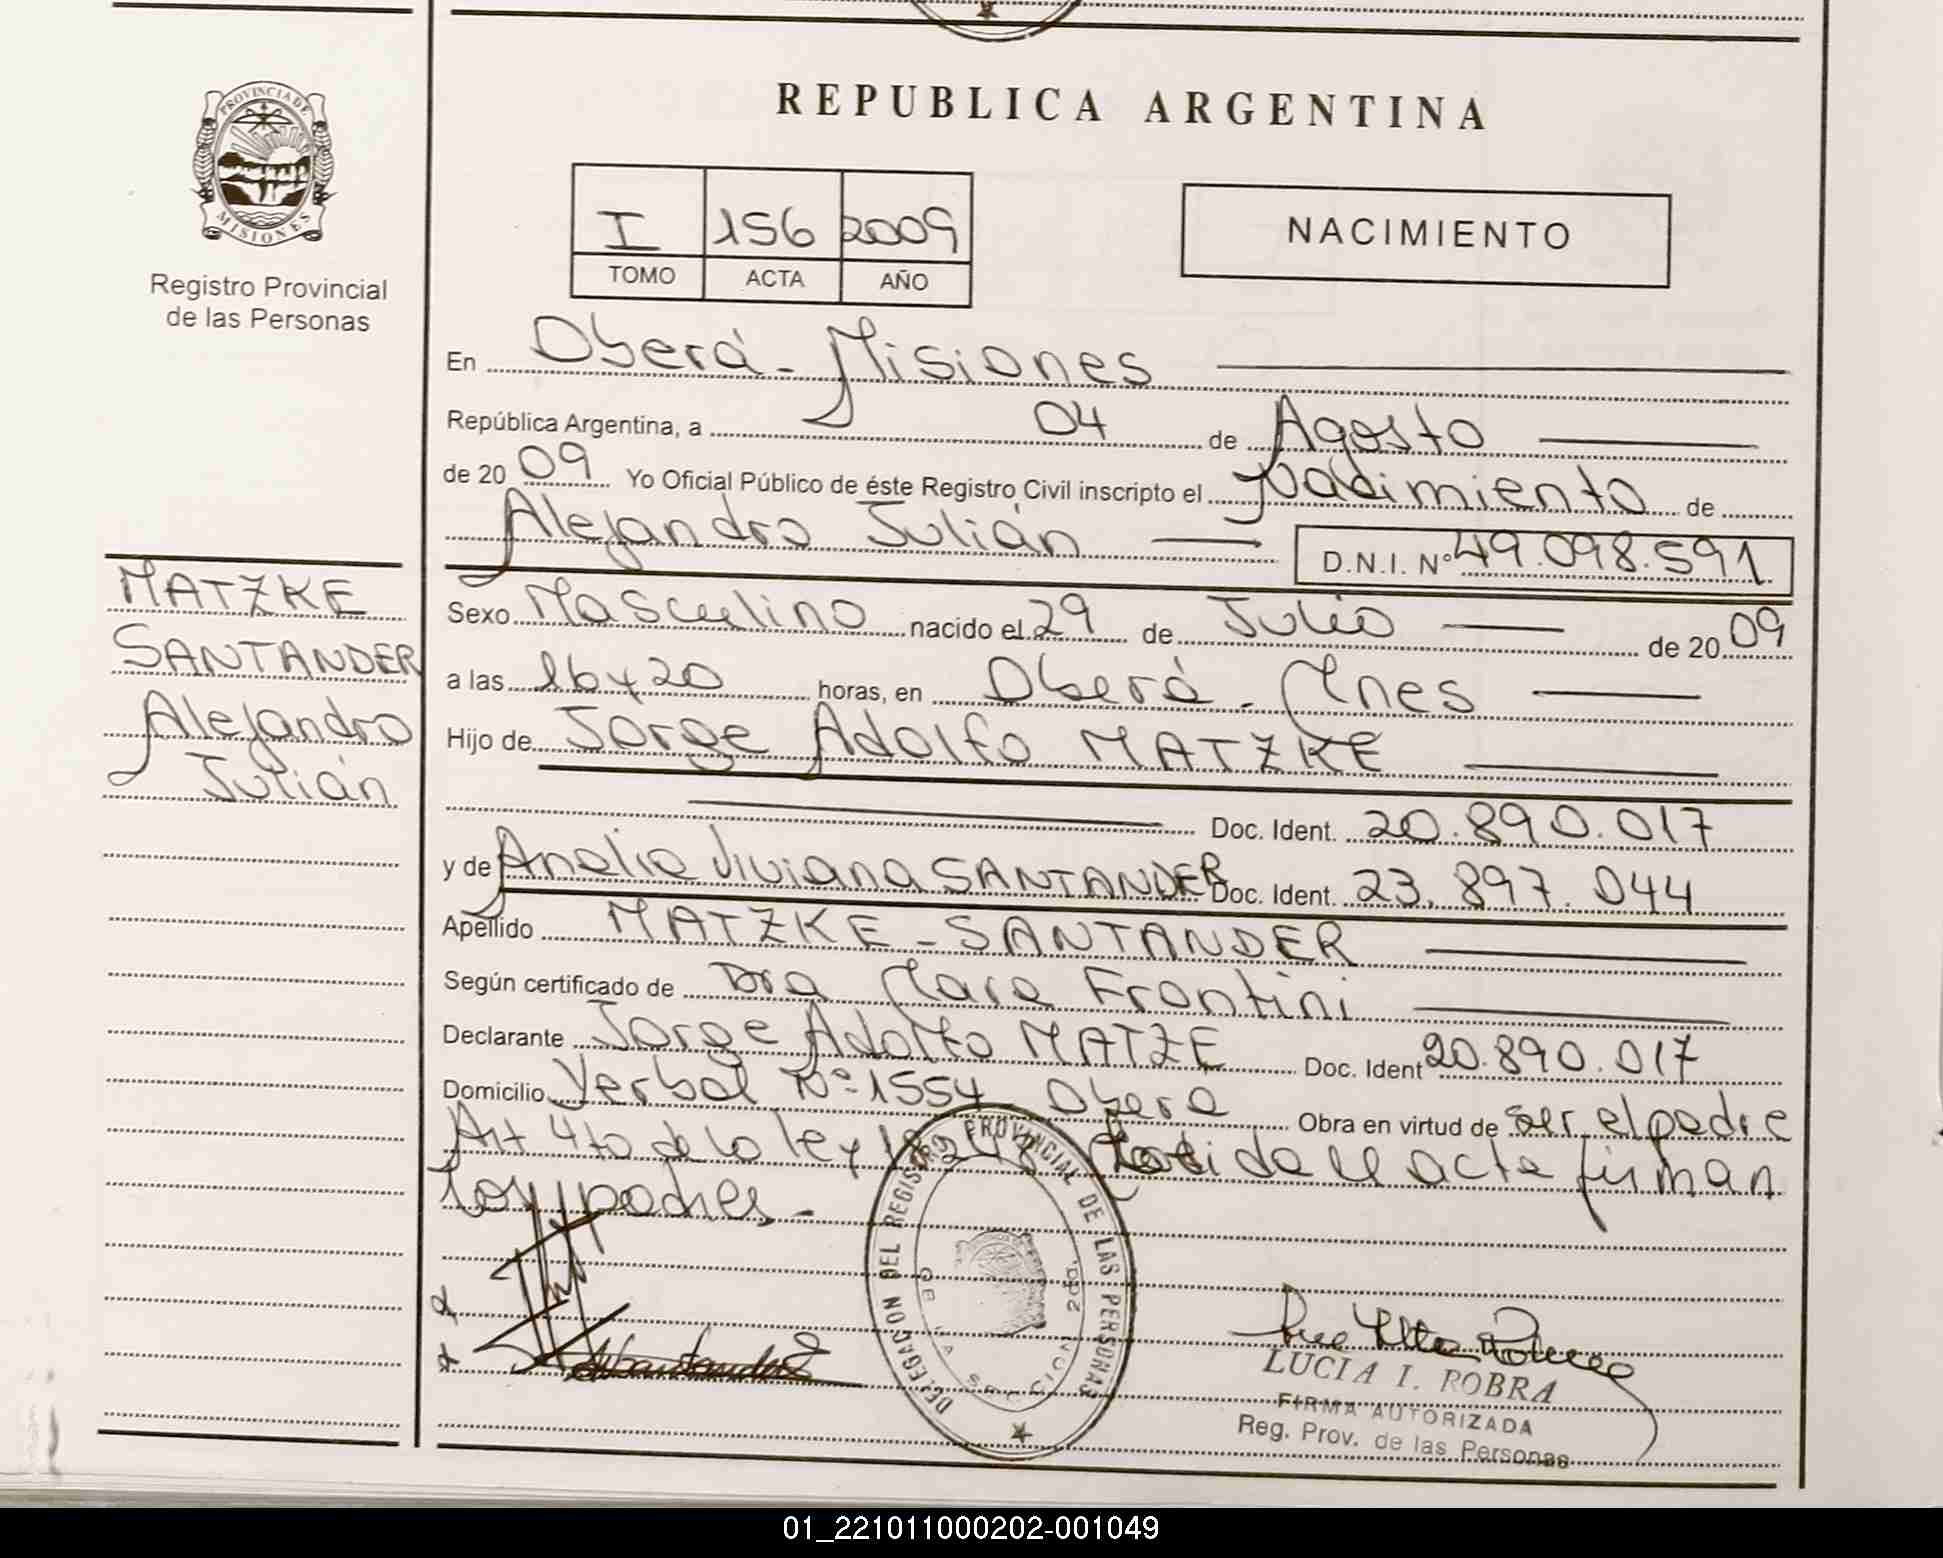 PROVINCIA DE
MISIONES
Registro Provincial
de las Personas
MATZKE
SANTANDER
Alejandro
Julián
REPUBLICA ARGENTINA
I 156 2009
TOMO ACTA AÑO
NACIMIENTO
En Oberá - Misiones
República Argentina, a 04 de Agosto
de 20 09 Yo Oficial Público de éste Registro Civil inscripto el nacimiento de
Alejandro Julián D.N.I. Nº 49.098.591
Sexo Masculino nacido el 29 de Julio de 20 09
a las 16 y 20 horas, en Oberá - Mnes
Hijo de Jorge Adolfo MATZKE
Doc. Ident. 20.890.017
y de Analia Viviana SANTANDER Doc. Ident. 23.897.044
Apellido MATZKE - SANTANDER
Según certificado de Dra Clara Frontini
Declarante Jorge Adolfo MATZE Doc. Ident 20.890.017
Domicilio Yerbal Nº 1554 Oberá Obra en virtud de ser el padre
Art 4to de la ley 18248 Leida el acta firman
los padres.-
DELEGACION DEL REGISTRO PROVINCIAL DE LAS PERSONAS
LUCIA I. ROBRA
FIRMA AUTORIZADA
Reg. Prov. de las Personas
01_221011000202-001049